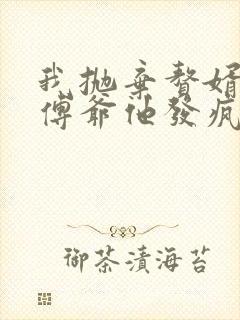 我抛棄贅婿
傅爺他發瘋
御茶漬海苔